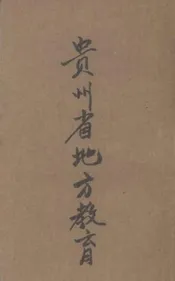 貴州省地方教育